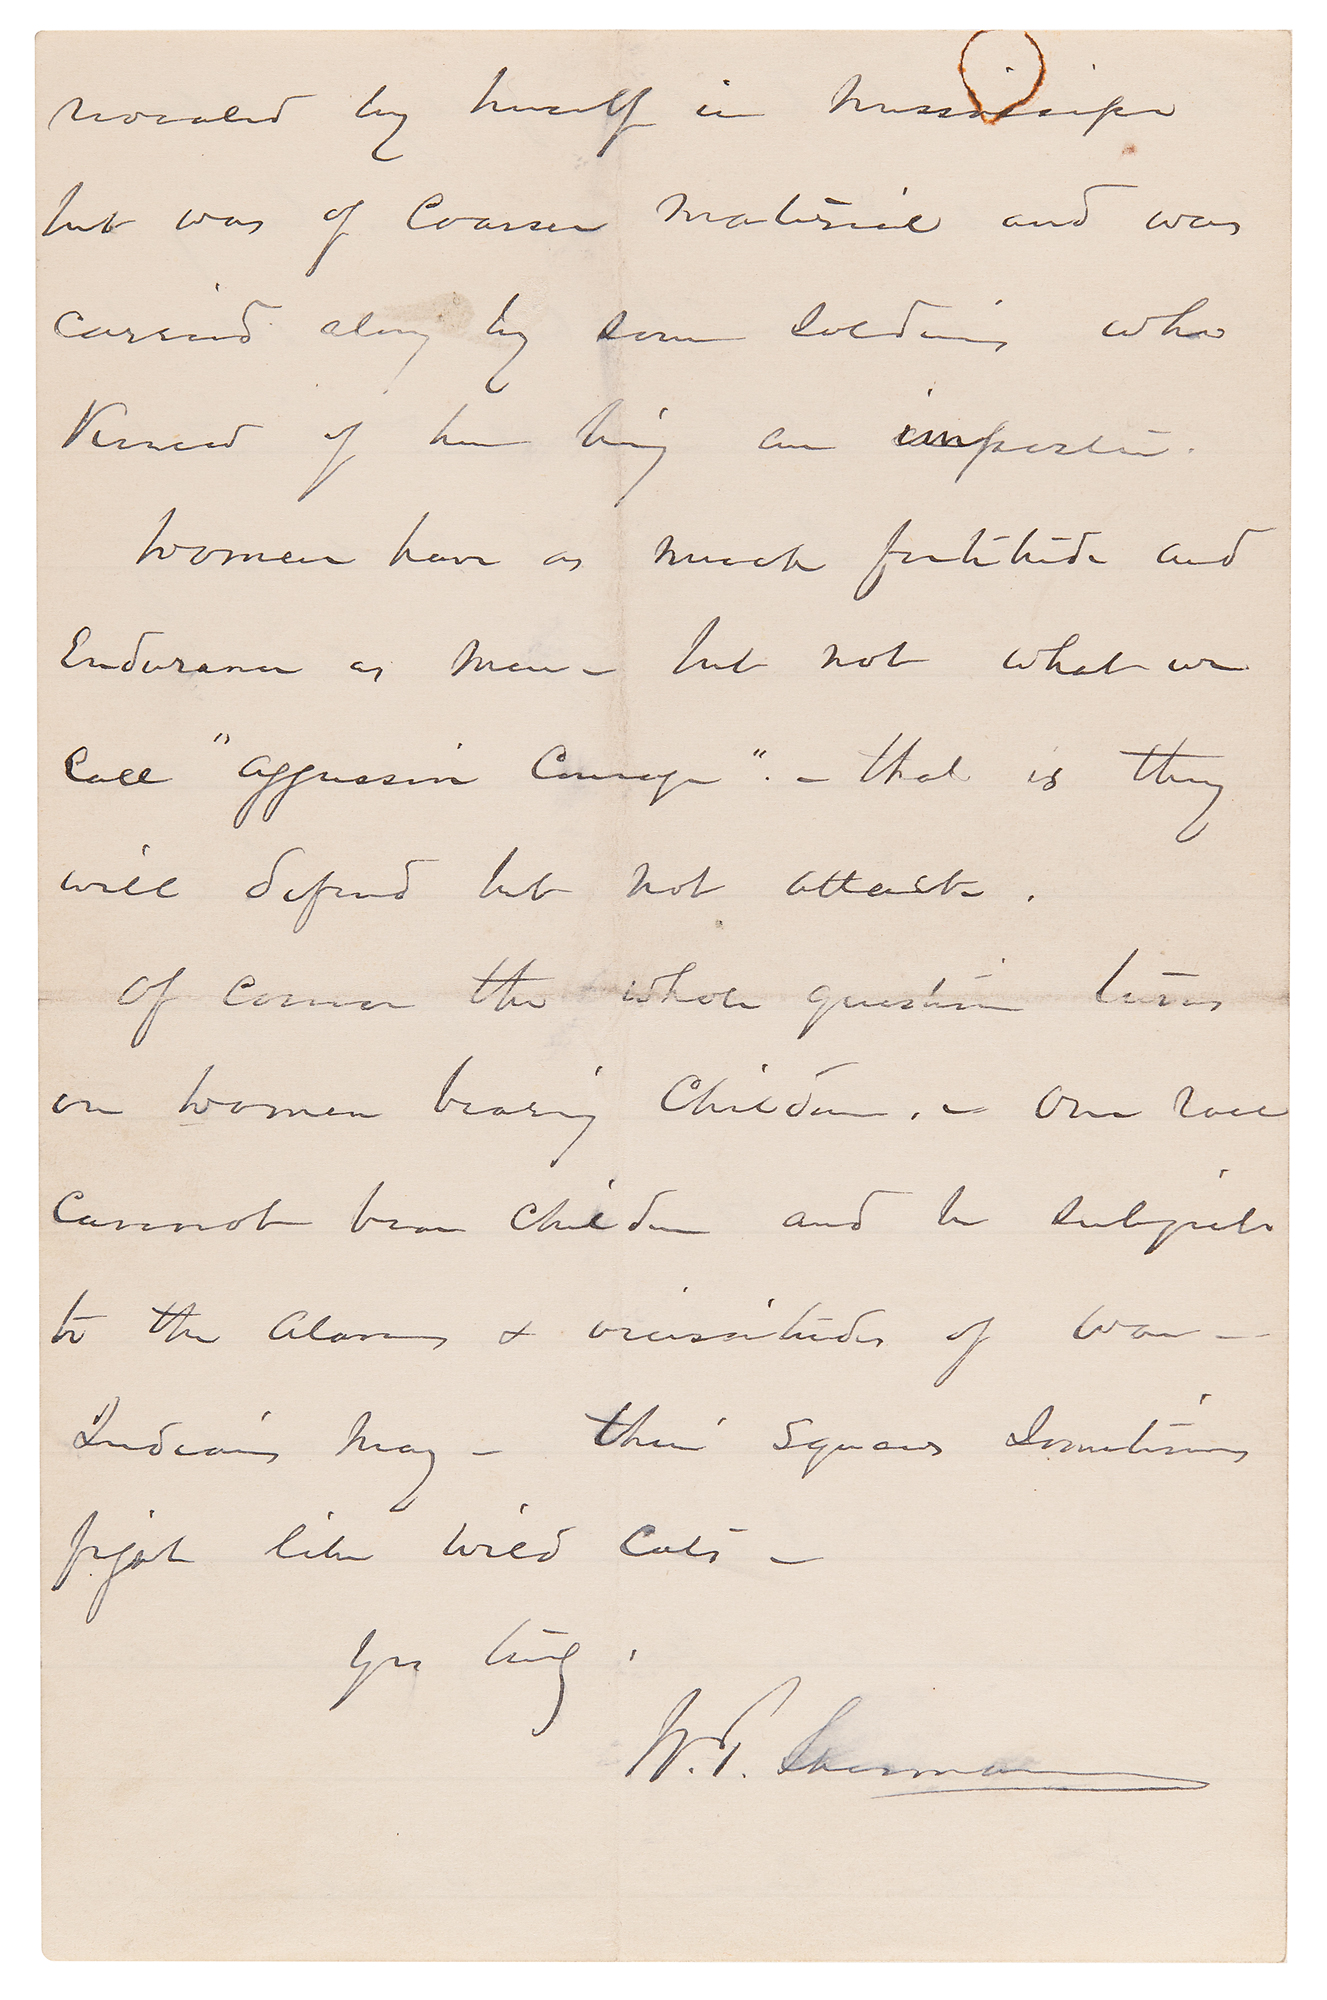 revealed by himself in Mississippi
but was of coarser material and was
carried along by some soldiers who
of him being an imposter.
Women have as much fortitude and
Endurance as men — but not what we
call "aggressive Courage". — that is they
will defend but not attack.
Of course the whole question turns
on women bearing Children. — Our race
cannot bear children and be subject
to the alarms & vicissitudes of war —
Indians may — their Squaws Sometimes
fight like wild cats —
Yrs truly,
W. T. Sherman